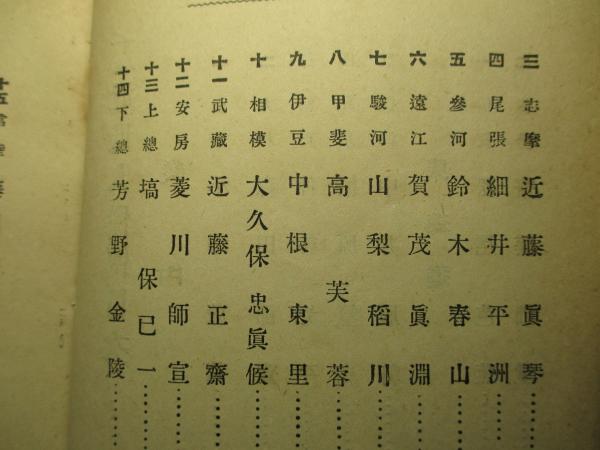 三 志摩 近藤眞琴
四 尾張 細井平洲
五 參河 鈴木春山
六 遠江 賀茂眞淵
七 駿河 山梨稻川
八 甲斐 高芙蓉
九 伊豆 中根東里
十 相模 大久保忠眞候
十一 武藏 近藤正齋
十二 安房 菱川師宣
十三 上總 塙保己一
十四 下總 芳野金陵
十五 常陸